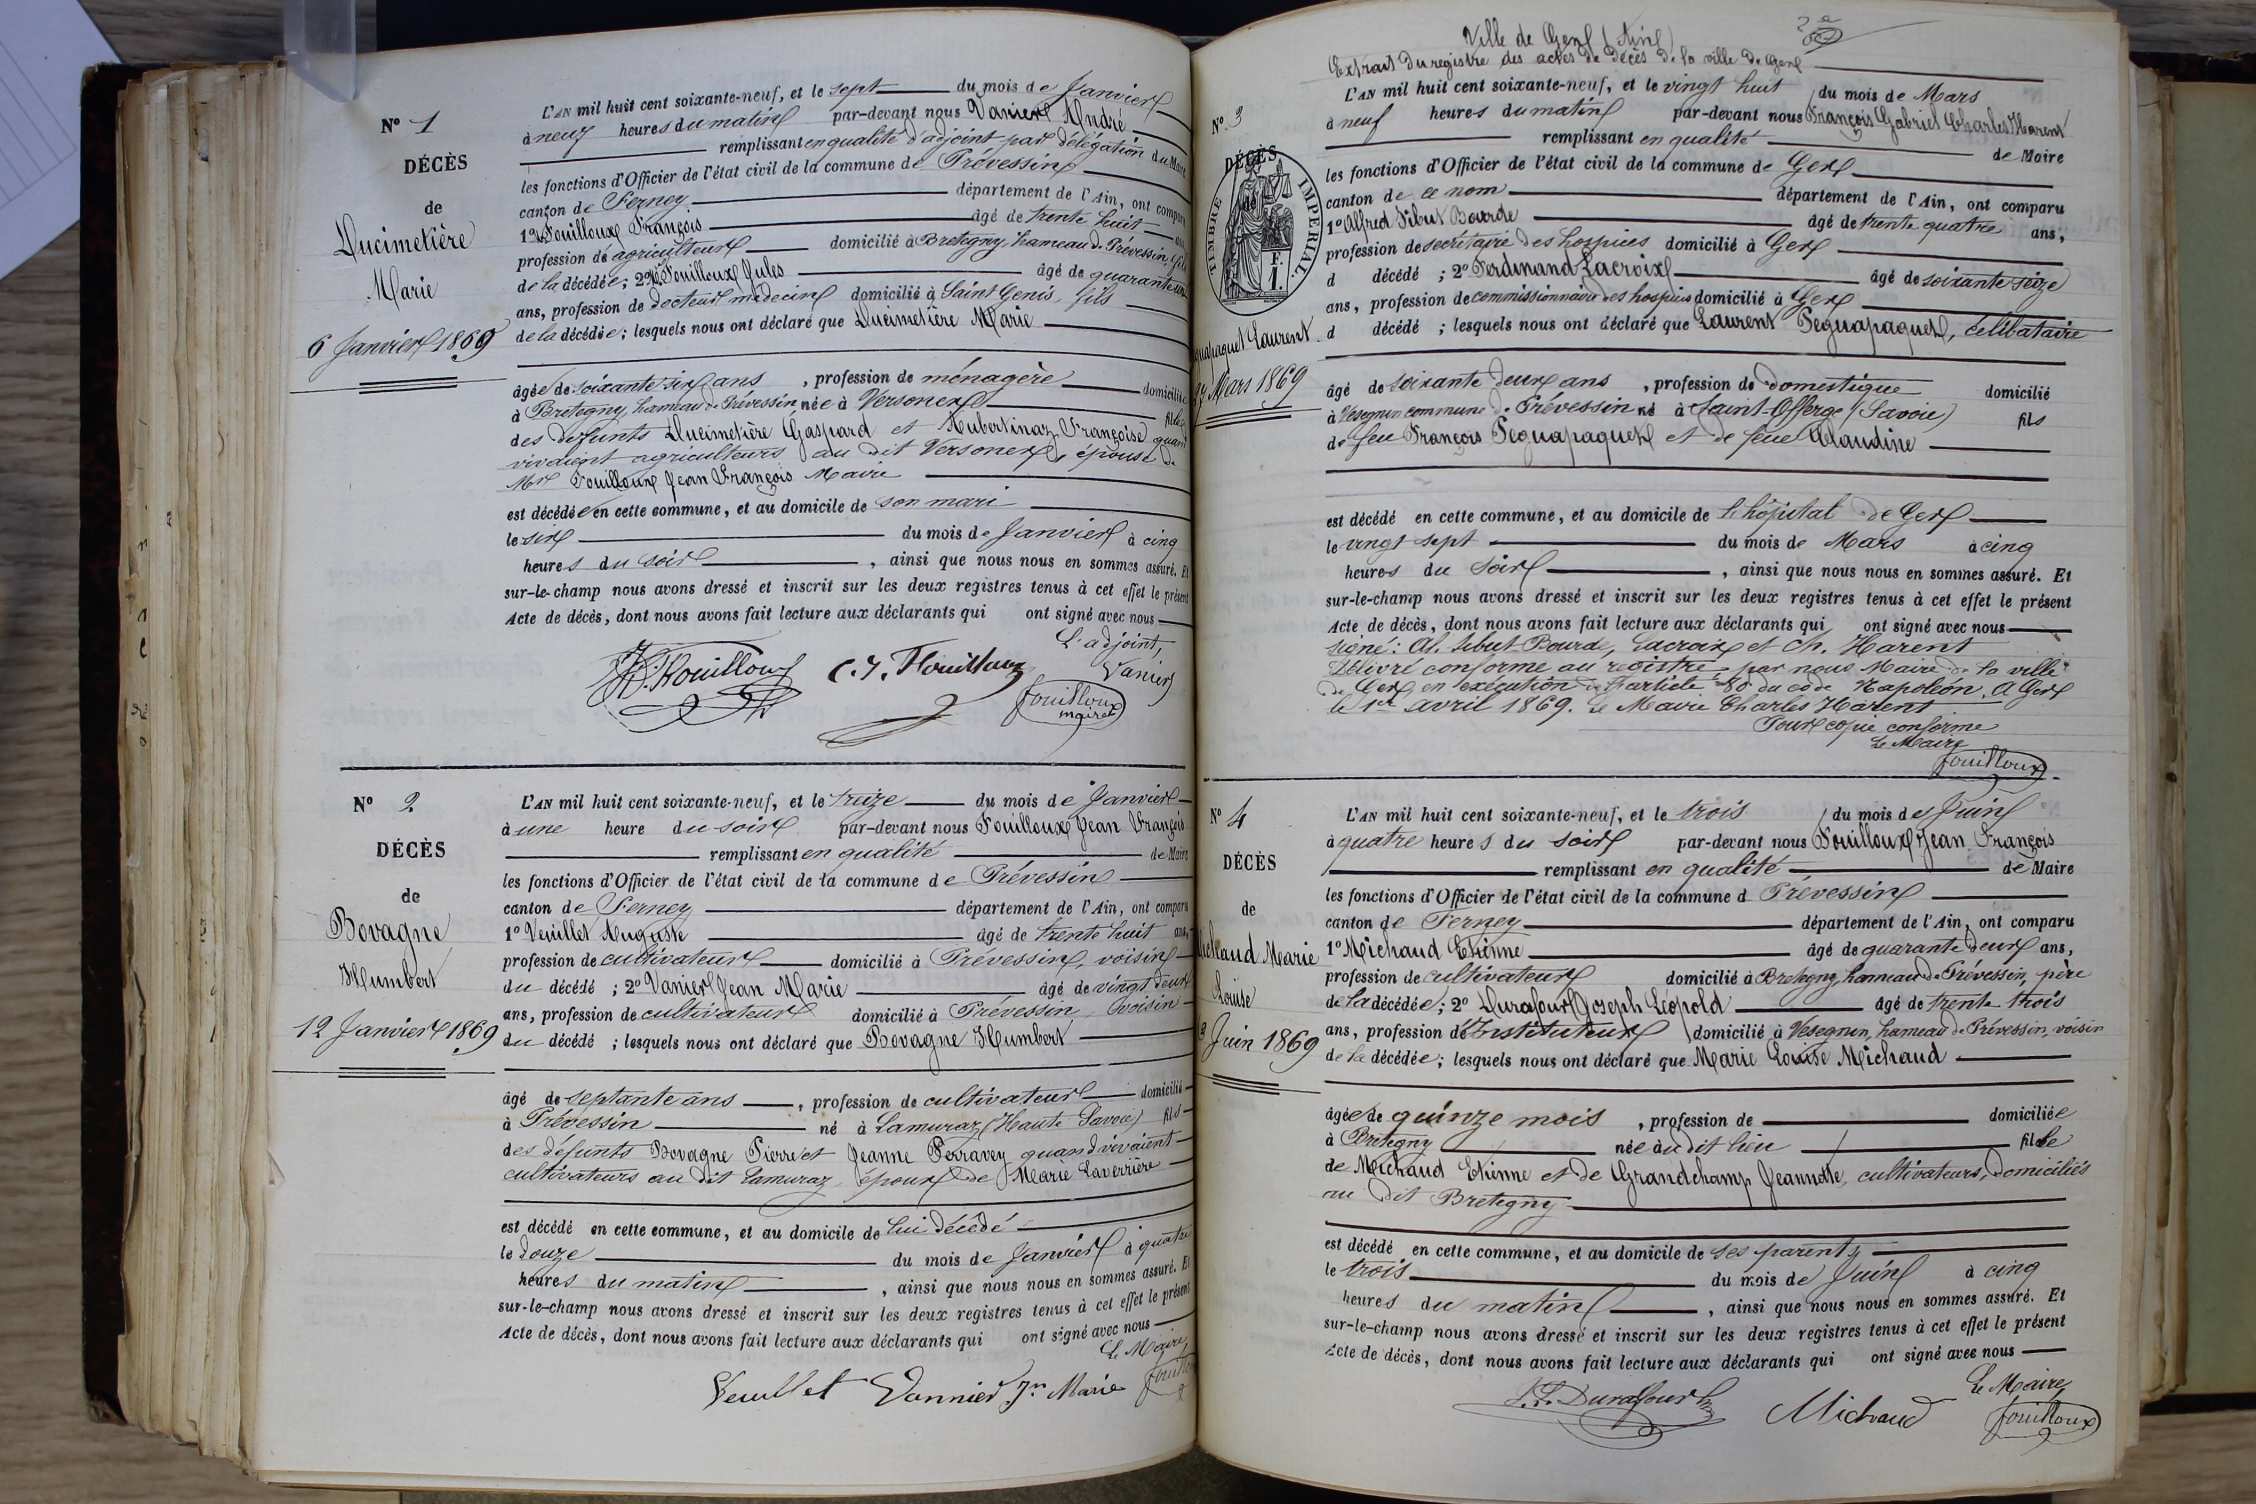 N° 1
DÉCÈS
de
Ducimetière
Marie
6 Janvier 1869
L'AN mil huit cent soixante-neuf, et le sept du mois de Janvier
à neuf heures du matin par-devant nous Vanier André
remplissant en qualité d'adjoint par délégation du Maire
les fonctions d'Officier de l'état civil de la commune de Prévessin
canton de Ferney département de l'Ain, ont comparu
1° Fouilloux François âgé de trente huit ans
profession de agriculteur domicilié à Bretegny, hameau de Prévessin, fils
de la décédée ; 2° Fouilloux Jules âgé de quarante un
ans, profession de docteur médecin domicilié à Saint Genis, fils
de la décédée ; lesquels nous ont déclaré que Ducimetière Marie
âgée de soixante six ans , profession de ménagère domiciliée
à Bretegny, hameau de Prévessin née à Versonex fille
des défunts Ducimetière Gaspard et Hubertinaz Françoise quand
vivaient agriculteurs au dit Versonex, épouse de
Mr Fouilloux Jean François Maire
est décédée en cette commune, et au domicile de son mari
le six du mois de Janvier à cinq
heures du soir , ainsi que nous nous en sommes assuré. Et
sur-le-champ nous avons dressé et inscrit sur les deux registres tenus à cet effet le présent
Acte de décès, dont nous avons fait lecture aux déclarants qui ont signé avec nous
L'adjoint,
Fouilloux C. J. Fouilloux Vanier
fouilloux
maire
N° 2
DÉCÈS
de
Bovagne
Humbert
12 Janvier 1869
L'AN mil huit cent soixante-neuf, et le treize du mois de Janvier
à une heure du soir par-devant nous Fouilloux Jean François
remplissant en qualité de Maire
les fonctions d'Officier de l'état civil de la commune de Prévessin
canton de Ferney département de l'Ain, ont comparu
1° Veuillet Auguste âgé de trente huit ans,
profession de cultivateur domicilié à Prévessin, voisin
du décédé ; 2° Vanier Jean Marie âgé de vingt deux
ans, profession de cultivateur domicilié à Prévessin, voisin
du décédé ; lesquels nous ont déclaré que Bovagne Humbert
âgé de septante ans , profession de cultivateur domicilié
à Prévessin né à Lamuraz (Haute Savoie) fils
des défunts Bovagne Pierre et Jeanne Perravey quand vivaient
cultivateurs au dit Lamuraz, époux de Marie Laverrière
est décédé en cette commune, et au domicile de lui décédé
le douze du mois de Janvier à quatre
heures du matin , ainsi que nous nous en sommes assuré. Et
sur-le-champ nous avons dressé et inscrit sur les deux registres tenus à cet effet le présent
Acte de décès, dont nous avons fait lecture aux déclarants qui ont signé avec nous
Le Maire
Veuillet Vannier Jn Marie
Ville de Gex (Ain)
Extrait du registre des actes de décès de la ville de Gex
N° 3
DÉCÈS
de
TIMBRE IMPÉRIAL
F.
1.
Laurent
Mars 1869
L'AN mil huit cent soixante-neuf, et le vingt huit du mois de Mars
à neuf heures du matin par-devant nous François Gabriel Charles Harent
remplissant en qualité de Maire
les fonctions d'Officier de l'état civil de la commune de Gex
canton de ce nom département de l'Ain, ont comparu
1° Alfred Sibut Bourde âgé de trente quatre ans,
profession de secrétaire des hospices domicilié à Gex
d décédé ; 2° Ferdinand Lacroix âgé de soixante seize
ans, profession de commissionnaire des hospices domicilié à Gex
d décédé ; lesquels nous ont déclaré que Laurent Peguapaquet, célibataire
âgé de soixante deux ans , profession de domestique domicilié
à Vésegnin commune de Prévessin né à Saint-Offerge (Savoie) fils
de feu François Peguapaquet et de feue Claudine
est décédé en cette commune, et au domicile de l'hôpital de Gex
le vingt sept du mois de Mars à cinq
heures du soir , ainsi que nous nous en sommes assuré. Et
sur-le-champ nous avons dressé et inscrit sur les deux registres tenus à cet effet le présent
Acte de décès, dont nous avons fait lecture aux déclarants qui ont signé avec nous
signé : Al. Sibut-Bourde, Lacroix et Ch. Harent
Délivré conforme au registre par nous Maire de la ville
de Gex en exécution de l'article 80 du code Napoléon, A Gex
le 1er avril 1869. Le Maire Charles Harent
Pour copie conforme
Le Maire
fouilloux
N° 4
DÉCÈS
de
Michaud Marie
Louise
3 Juin 1869
L'AN mil huit cent soixante-neuf, et le trois du mois de Juin
à quatre heures du soir par-devant nous Fouilloux Jean François
remplissant en qualité de Maire
les fonctions d'Officier de l'état civil de la commune d Prévessin
canton de Ferney département de l'Ain, ont comparu
1° Michaud Etienne âgé de quarante deux ans,
profession de cultivateur domicilié à Bretegny, hameau de Prévessin, père
de la décédée ; 2° Durafour Joseph Léopold âgé de trente trois
ans, profession de Instituteur domicilié à Vésegnin, hameau de Prévessin, voisin
de la décédée ; lesquels nous ont déclaré que Marie Louise Michaud
âgée de quinze mois , profession de domiciliée
à Bretegny née au dit lieu fille
de Michaud Etienne et de Grandchamp Jeannette, cultivateurs, domiciliés
au dit Bretegny
est décédé en cette commune, et au domicile de ses parents
le trois du mois de Juin à cinq
heures du matin , ainsi que nous nous en sommes assuré. Et
sur-le-champ nous avons dressé et inscrit sur les deux registres tenus à cet effet le présent
Acte de décès, dont nous avons fait lecture aux déclarants qui ont signé avec nous
Le Maire
J. L. Durafour Michaud fouilloux